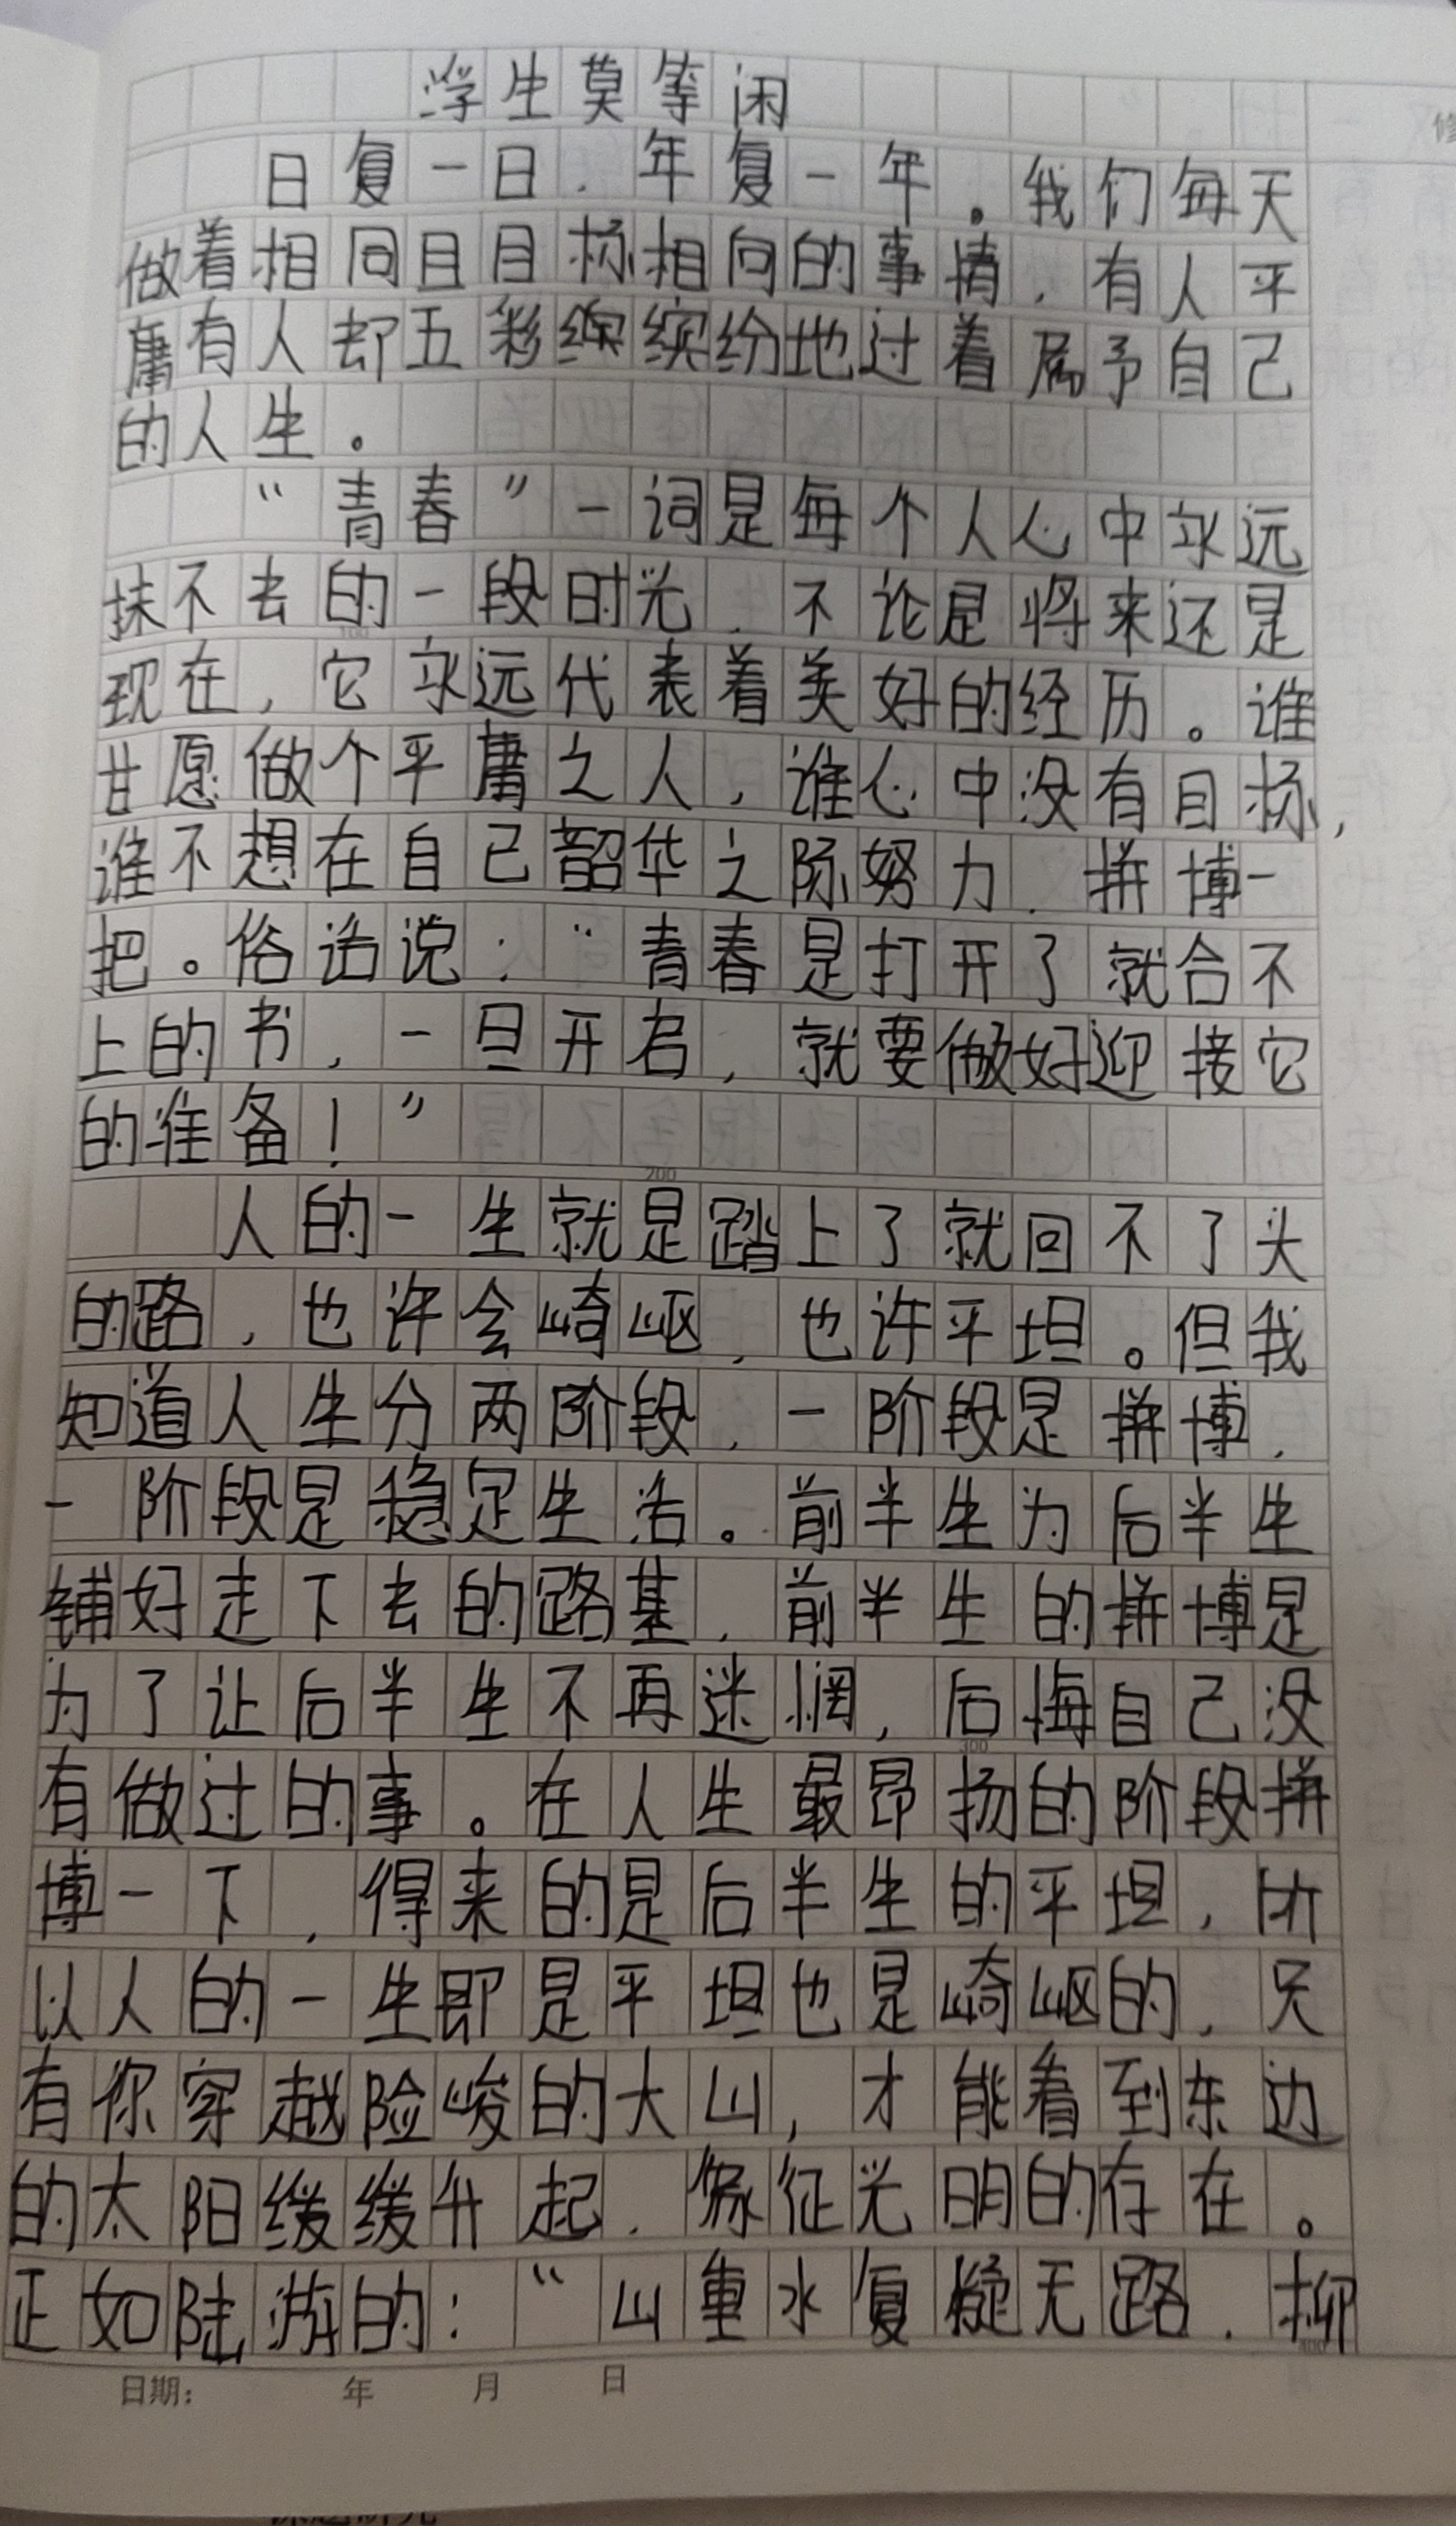 浮生莫等闲
日复一日，年复一年。我们每天
做着相同且目标相同的事情，有人平
庸有人却五彩缤缤纷地过着属予自己
的人生。
“青春”一词是每个人心中永远
抹不去的一段时光，不论是将来还是
现在，它永远代表着美好的经历。谁
甘愿做个平庸之人，谁心中没有目标，
谁不想在自己韶华之际努力，拼博一
把。俗话说：“青春是打开了就合不
上的书，一旦开启，就要做好迎接它
的准备！”
人的一生就是踏上了就回不了头
的路，也许会崎岖，也许平坦。但我
知道人生分两阶段，一阶段是拼博，
一阶段是稳定生活。前半生为后半生
铺好走下去的路基，前半生的拼博是
为了让后半生不再迷惘，后悔自己没
有做过的事。在人生最昂扬的阶段拼
博一下，得来的是后半生的平坦，所
以人的一生即是平坦也是崎岖的，只
有你穿越险峻的大山，才能看到东边
的太阳缓缓升起，像征光明的存在。
正如陆游的：“山重水复疑无路，柳
日期： 年 月 日